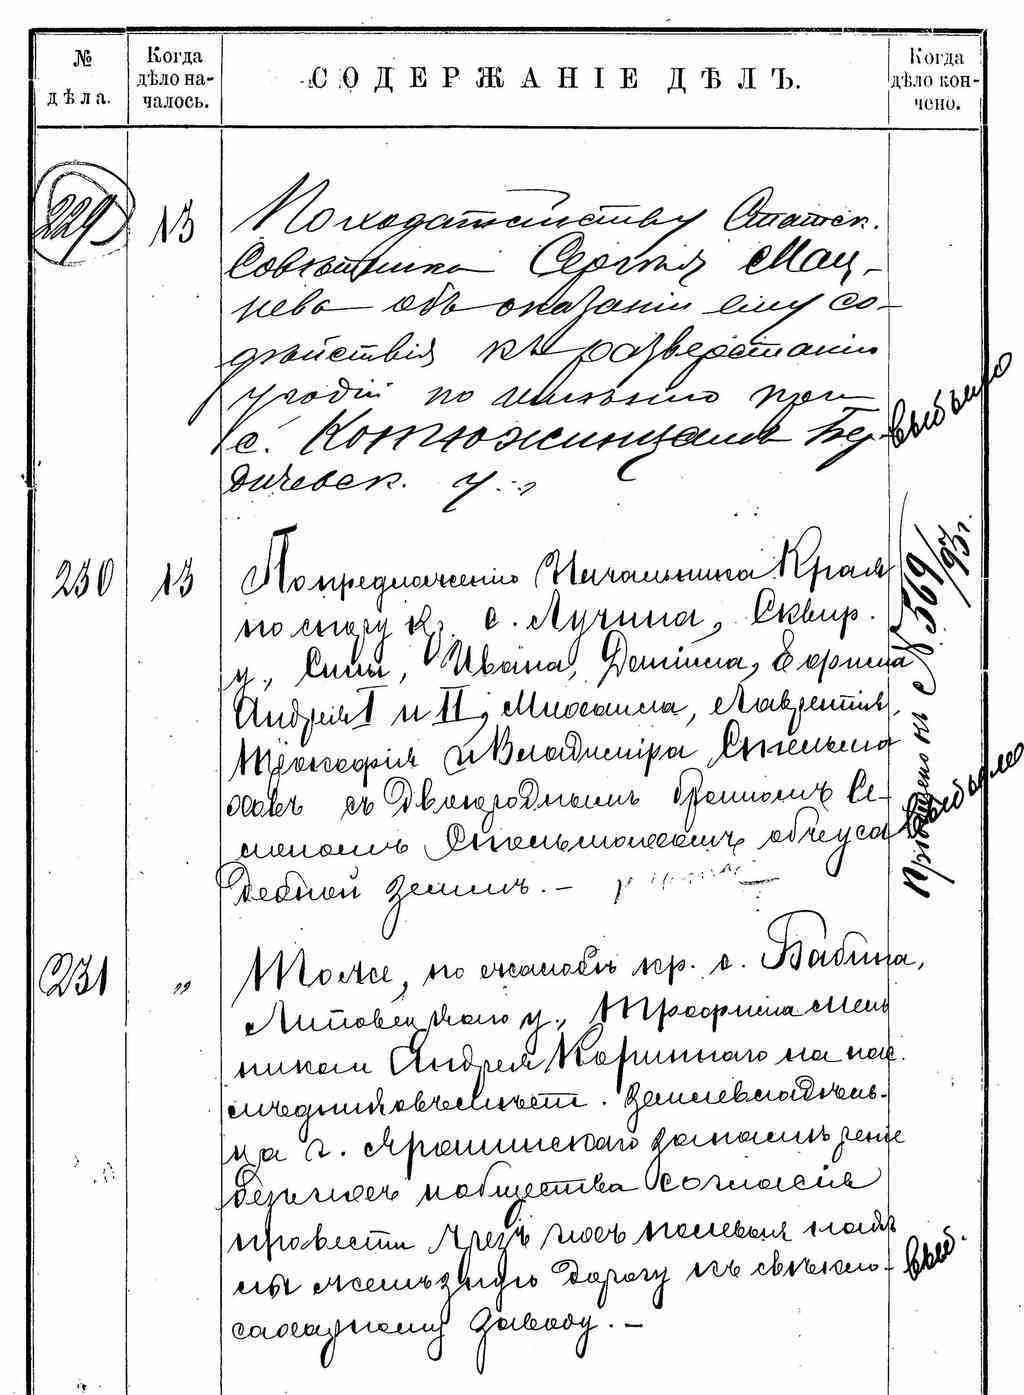 № дѣла.
Когда дѣло началось.
СОДЕРЖАНІЕ ДѢЛЪ.
Когда дѣло кончено.
229
13
По ходатайству Статск.
Совѣтника Сергѣя Мац-
нева объ оказаніи ему со-
дѣйствія къ разверстанію
угодій по имѣнію при
с. Котюжинцахъ Бер-
дичевск. у.
выбыло
230
13
По предложенію Начальника Края
по спору кр. с. Лучина, Сквир.
у., Ивана, Даніила, Ефима
Андрея I и II, Михаила, Лаврентія,
Прокофія и Владиміра Стельма
ховъ съ двоюроднымъ братомъ Се-
меномъ Стельмахомъ объ уса
дебной землѣ. —
Пріобщено къ № 569/93 г.
выбыло
231
"
Тоже, по жалобѣ кр. с. Бабина,
Липовецкаго у., Трофима
Андрея на
землевладѣль-
ца г. Ярошинскаго за
безъ ихъ и общества согласія
провести чрезъ ихъ полевыя надѣ
лы желѣзную дорогу къ свекло-
сахарному заводу. —
выб.